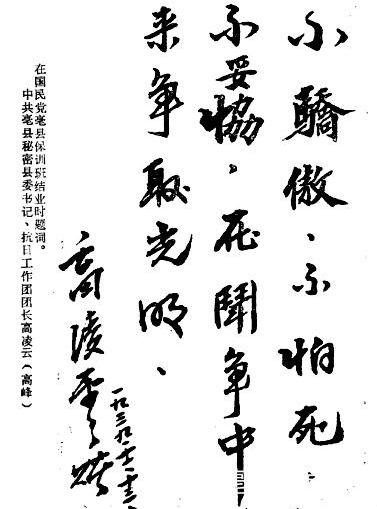 不驕傲、不怕死
不妥協，在鬥争中
来争取光明、
高凌雲
一九三九
在国民党亳县保训班结业时题词。
中共亳县秘密县委书记、抗日工作团团长高凌云（高峰）